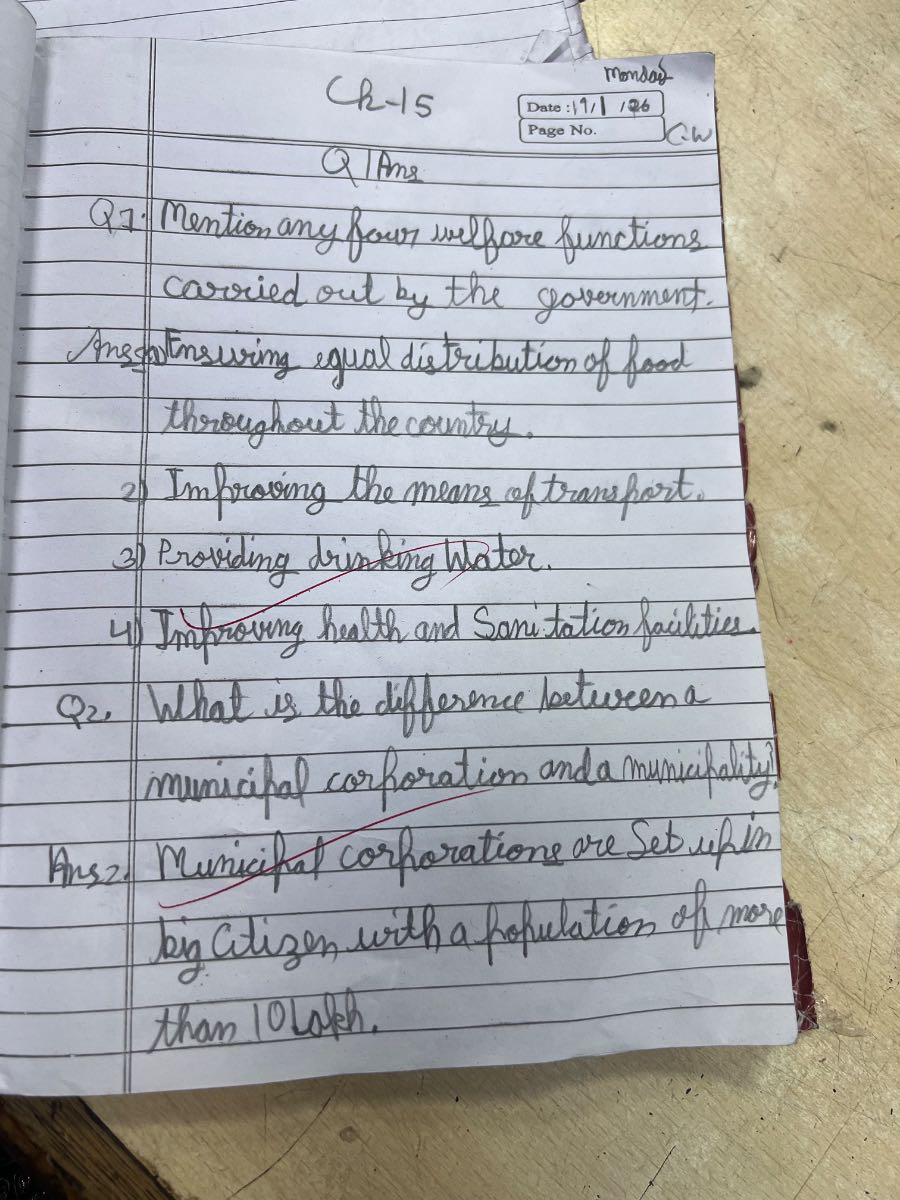 Monday
Ch-15
Date : 19/1/26
Page No.
C.W
Q/Ans
Q1. Mention any four welfare functions
carried out by the government.
Ans 1) Ensuring equal distribution of food
throughout the country.
2) Improving the means of transport.
3) Providing drinking Water.
4) Improving health and Sanitation facilities.
Q2. What is the difference between a
municipal corporation and a municipality?
Ans2. Municipal corporations are Set up in
big Citizen with a population of more
than 10 Lakh.